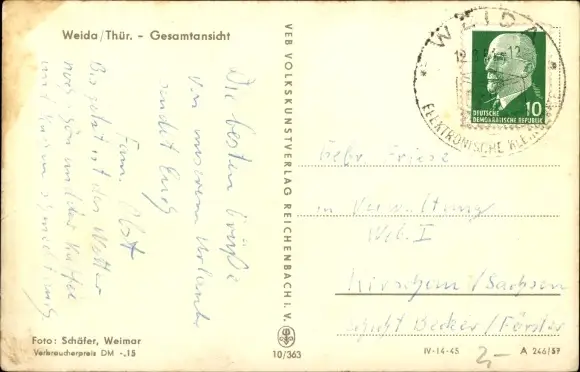 Weida/Thür. - Gesamtansicht
Die besten Grüße
von unserem Urlaub
sendet Euch
Fam. Obst
Bis jetzt ist das Wetter
noch schön und der Kaffee
und Kuchen
Foto: Schäfer, Weimar
Verbraucherpreis DM -.15
VEB VOLKSKUNSTVERLAG REICHENBACH i. V.
10/363
WEIDA
12
ELEKTRONISCHE
10
DEUTSCHE
DEMOKRATISCHE REPUBLIK
Gebr. Friese
in Verwaltung
Web. I
Kirschau/Sachsen
Schicht Becker/Förster
IV-14-45
2,-
A 246/57